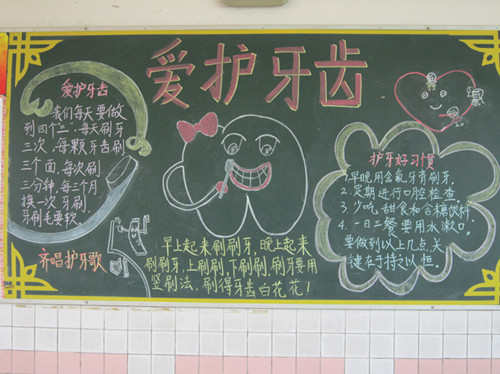 爱护牙齿
爱护牙齿
我们每天要做
到四个三,每天刷牙
三次,每颗牙齿刷
三个面,每次刷
三分钟,每三个月
换一次牙刷,
牙刷毛要软
齐唱护牙歌
早上起来刷刷牙,晚上起来
刷刷牙,上刷刷,下刷刷,刷牙要用
竖刷法,刷得牙齿白花花!
护牙好习惯
1.早晚用含氟牙膏刷牙.
2.定期进行口腔检查.
3.少吃甜食和含糖饮料
4.一日三餐要用水漱口.
要做到以上几点,关
键在于持之以恒.